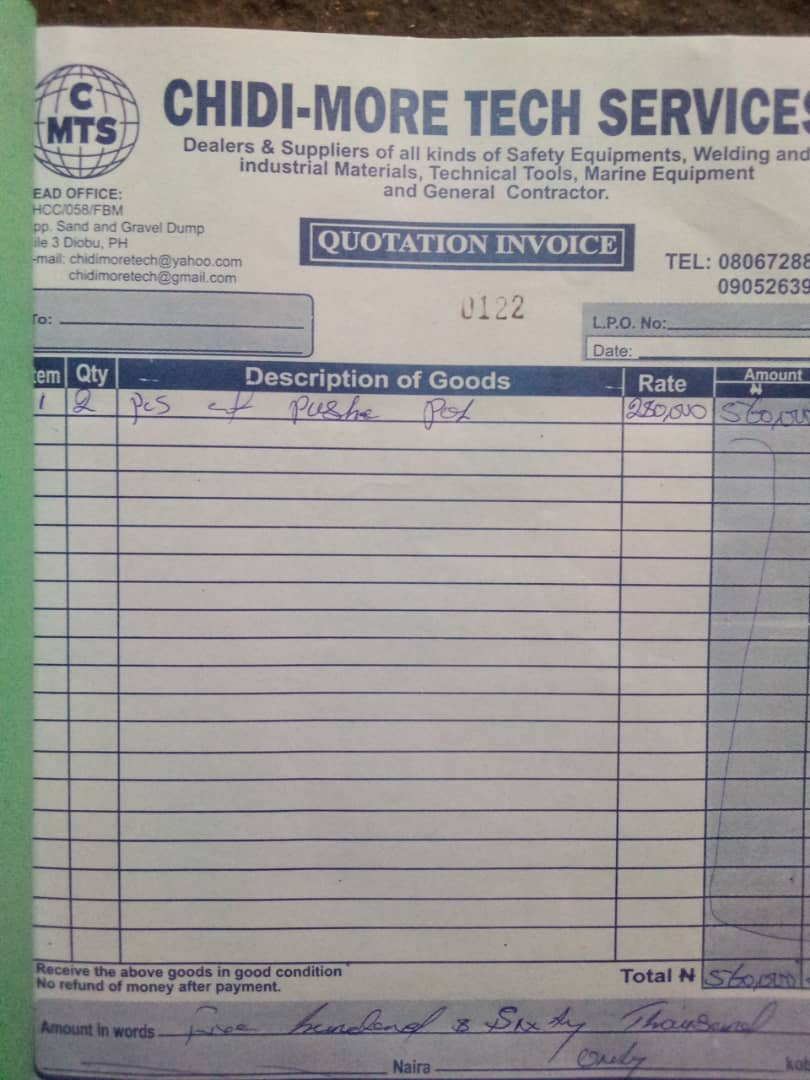 C
MTS
CHIDI-MORE TECH SERVICES
Dealers & Suppliers of all kinds of Safety Equipments, Welding and
industrial Materials, Technical Tools, Marine Equipment
and General Contractor.
EAD OFFICE:
HCC/058/FBM
pp. Sand and Gravel Dump
ile 3 Diobu, PH
-mail: chidimoretech@yahoo.com
chidimoretech@gmail.com
QUOTATION INVOICE
TEL: 08067288
09052639
0122
To:
L.P.O. No:
Date:
tem Qty Description of Goods Rate Amount
₦
1 2 Pcs of Pushe 280,000 560,000
Receive the above goods in good condition
No refund of money after payment.
Total ₦ 560,000
Amount in words Five hundred & Sixty Thousand
Naira Only kob